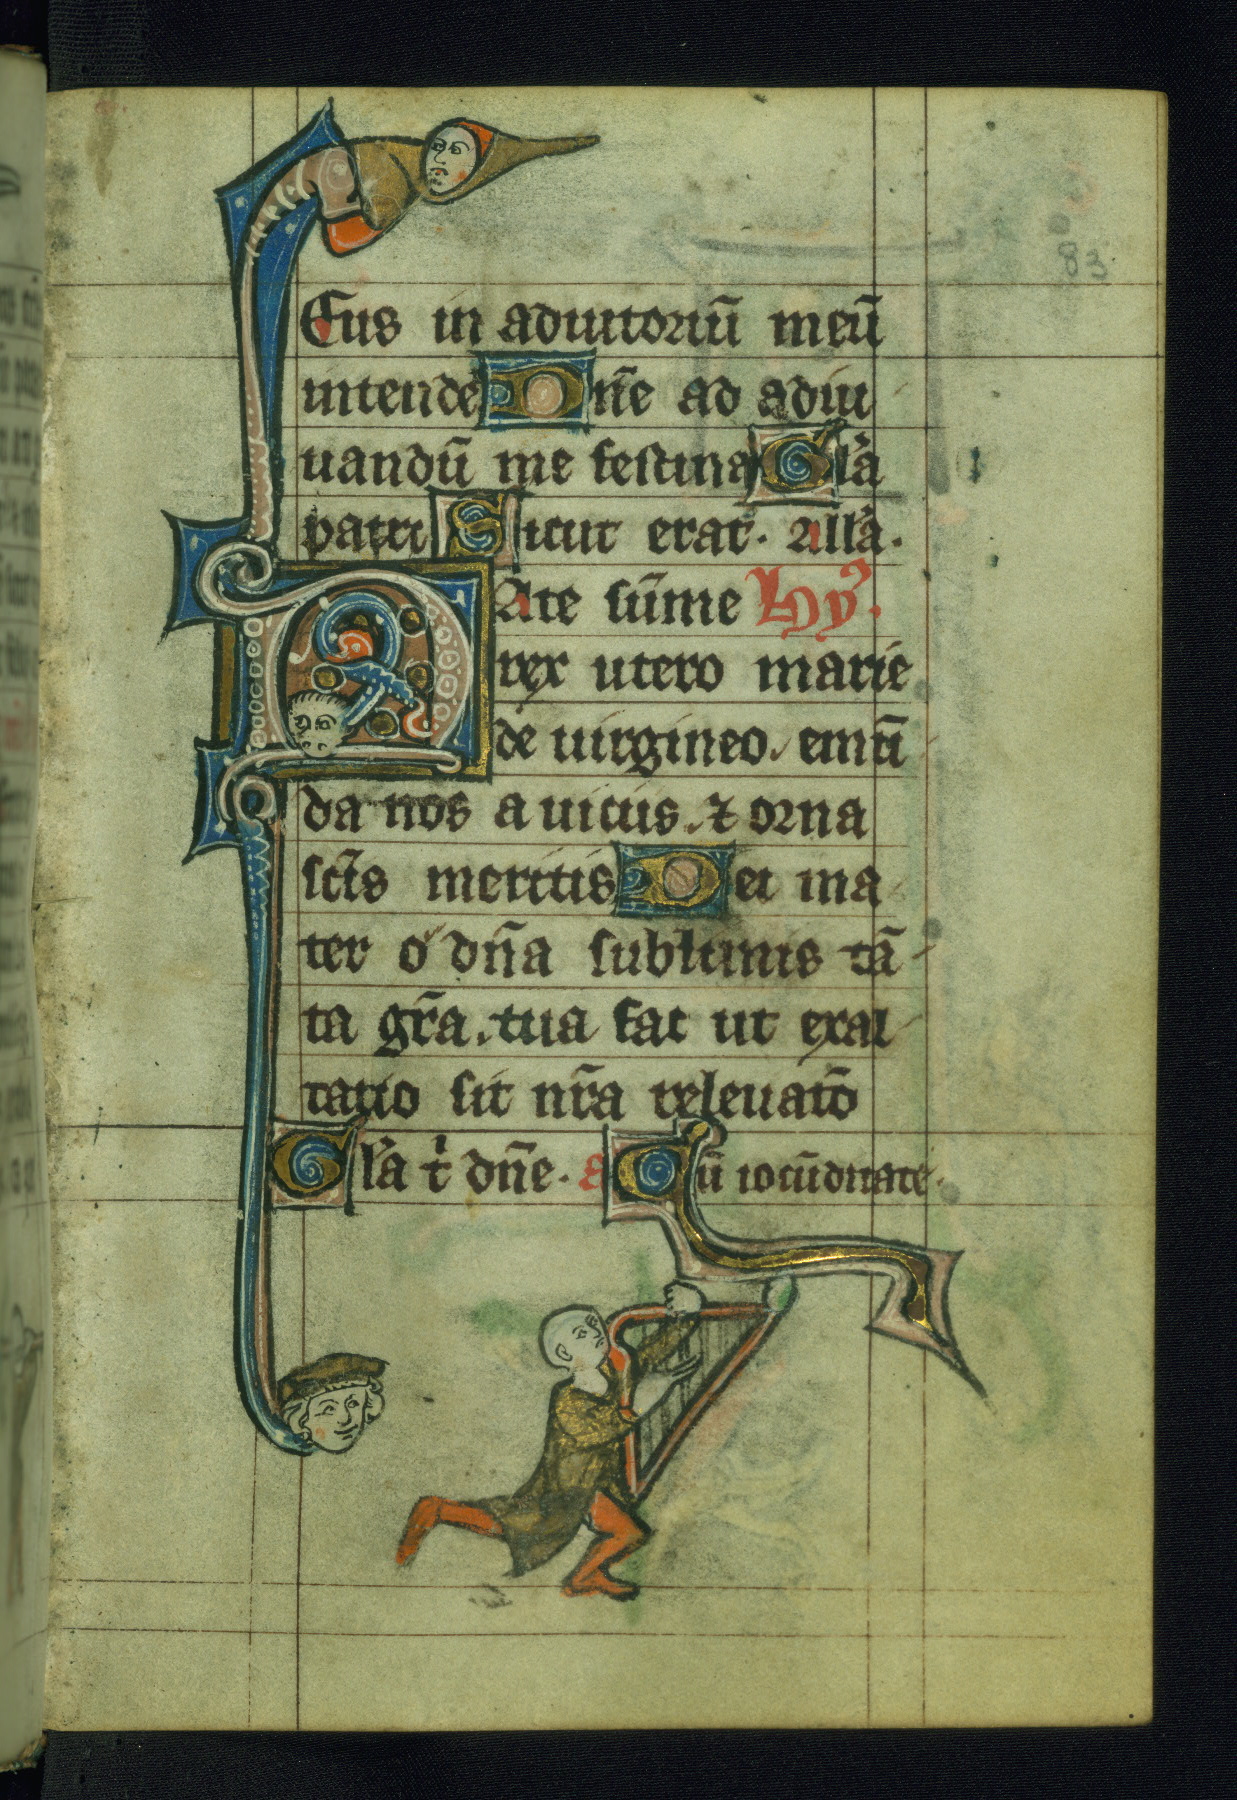 83
Eus in adiutoriū meū
intende Dn̄e ad adiu
uandū me festina Gl'a
patri Sicut erat. all'a.
Nate sūme Hy᾿.
rex utero marie
de uirgineo. emū
da nos a uiciis. ⁊ orna
sc̄is meritis Dei ma
ter o dn̄a sublimis tā
ta gr̄a. tua fac ut exal
tatio sit nr̄a releuatō
Gl'a t' dn̄e. a Cū iocūditate.